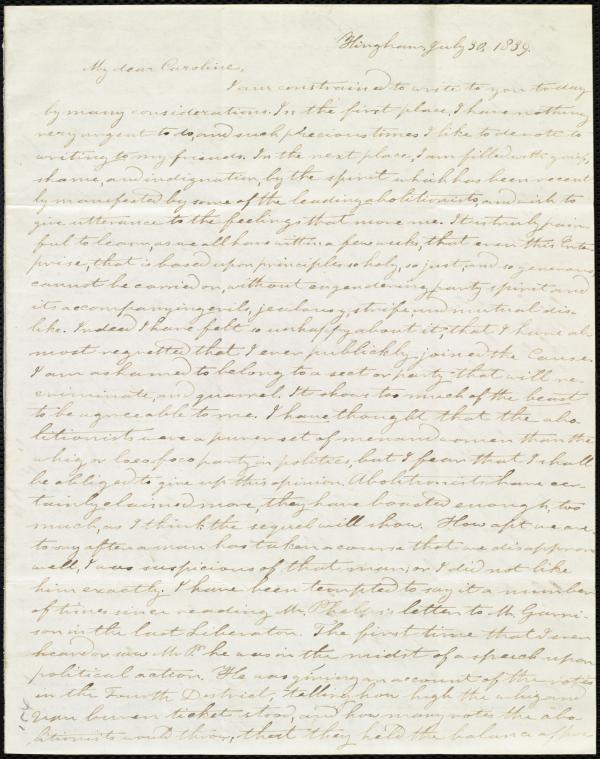 Hingham, July 30, 1839.
My dear Caroline,
I am constrained to write to you to-day
by many considerations. In the first place, I have nothing
very urgent to do, and such precious times I like to devote to
writing to my friends. In the next place, I am filled with grief,
shame, and indignation, by the spirit which has been recent-
ly manifested by some of the leading abolitionists, and wish to
give utterance to the feelings that move me. It is truly pain-
ful to learn, as we all have within a few weeks, that even this Enter-
prise, that is based upon principles so holy, so just, and so generous,
cannot be carried on, without engendering party spirit and
its accompanying evils, jealousy, strife and mutual dis-
like. Indeed I have felt so unhappy about it, that I have al-
most regretted that I ever publickly joined the Cause.
I am ashamed to belong to a sect or party that will re-
criminate, and quarrel. It shows too much of the beast
to be agreeable to me. I have thought that the abo-
litionists were a purer set of men and women than the
whig or locofoco party in politics, but I fear that I shall
be obliged to give up this opinion. Abolitionists have cer-
tainly claimed more, they have boasted enough, too
much, as I think the sequel will show. How apt we are
to say after a man has taken a course that we disapprove
well, I was suspicious of that man, or I did not like
him exactly. I have been tempted to say it a number
of times since reading Mr. Phelps's letter to Mr. Garri-
son in the last Liberator. The first time that I ever
heard or saw Mr. P. he was in the midst of a speech upon
political action. He was giving an account of the votes
in the Fourth District, telling how high the whig and
Van buren ticket stood, and how many votes the abo-
litionists could throw, that they held the balance of pow